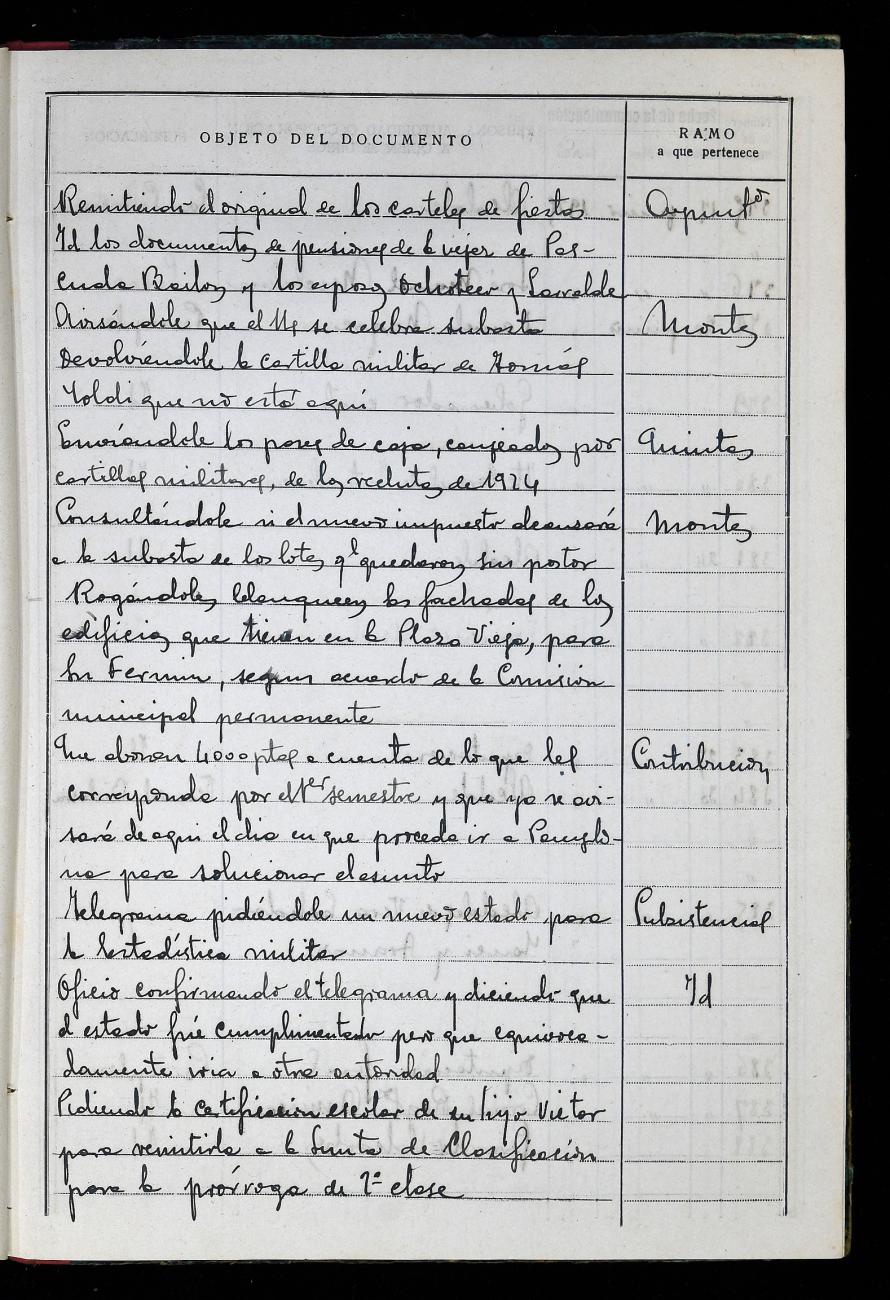 OBJETO DEL DOCUMENTO
RAMO
a que pertenece
Remitiendo el original de los carteles de fiestas
Id los documentos de pensiones de la vejez de Pas-
cuala Bailos y los esposos Ochoteco y Larralde
Avisándole que el 14 se celebra subasta Montes
Devolviéndole la cartilla militar de Tomás
Yoldi que no está aquí
Enviándole los pases de caja, canjeados por Quintas
cartillas militares, de los reclutas de 1924
Consultándole si el nuevo impuesto alcanzará Montes
a la subasta de los lotes ql quedaron sin postor
Rogándoles blanqueen las fachadas de los
edificios que tienen en la Plaza Vieja, para
Sn Fermin, segun acuerdo de la Comision
municipal permanente
Que abonen 4000 ptas a cuenta de lo que les Contribucion
corresponda por el 1er semestre y que ya se avi-
sará de aqui el dia en que proceda ir a Pamplo-
na para solucionar el asunto
Telegrama pidiéndole un nuevo estado para Subsistencias
la Estadística militar
Oficio confirmando el telegrama y diciendo que Id
el estado fué cumplimentado pero que equivoca-
damente iria a otra autoridad
Pidiendo la certificacion escolar de su hijo Victor
para remitirla a la Junta de Clasificación
para la prórroga de 1ª clase